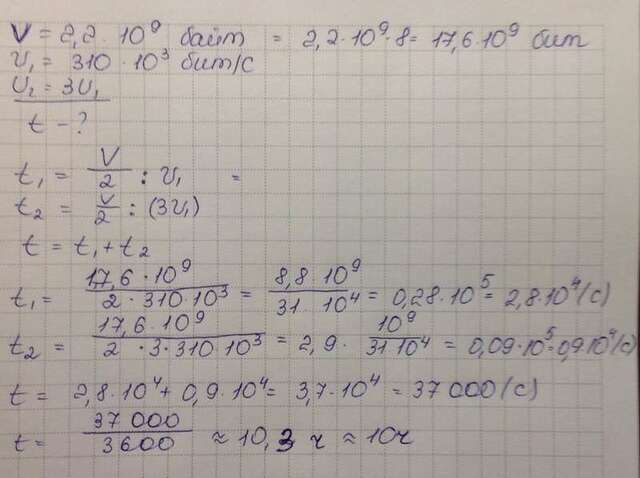 V = 2,2 · 10⁹ байт = 2,2·10⁹·8 = 17,6·10⁹ бит
υ₁ = 310 · 10³ бит/с
υ₂ = 3υ₁
t - ?
t₁ = V/2 : υ₁ =
t₂ = V/2 : (3υ₁)
t = t₁ + t₂
t₁ = 17,6 · 10⁹ / 2 · 310 · 10³ = 8,8 · 10⁹ / 31 · 10⁴ = 0,28 · 10⁵ = 2,8 · 10⁴ (с)
t₂ = 17,6 · 10⁹ / 2 · 3 · 310 · 10³ = 2,9 · 10⁹ / 31 10⁴ = 0,09 · 10⁵ = 0,9 10⁴ (с)
t = 2,8 · 10⁴ + 0,9 · 10⁴ = 3,7 · 10⁴ = 37 000 (с)
t = 37 000 / 3600 ≈ 10,3 ч ≈ 10ч